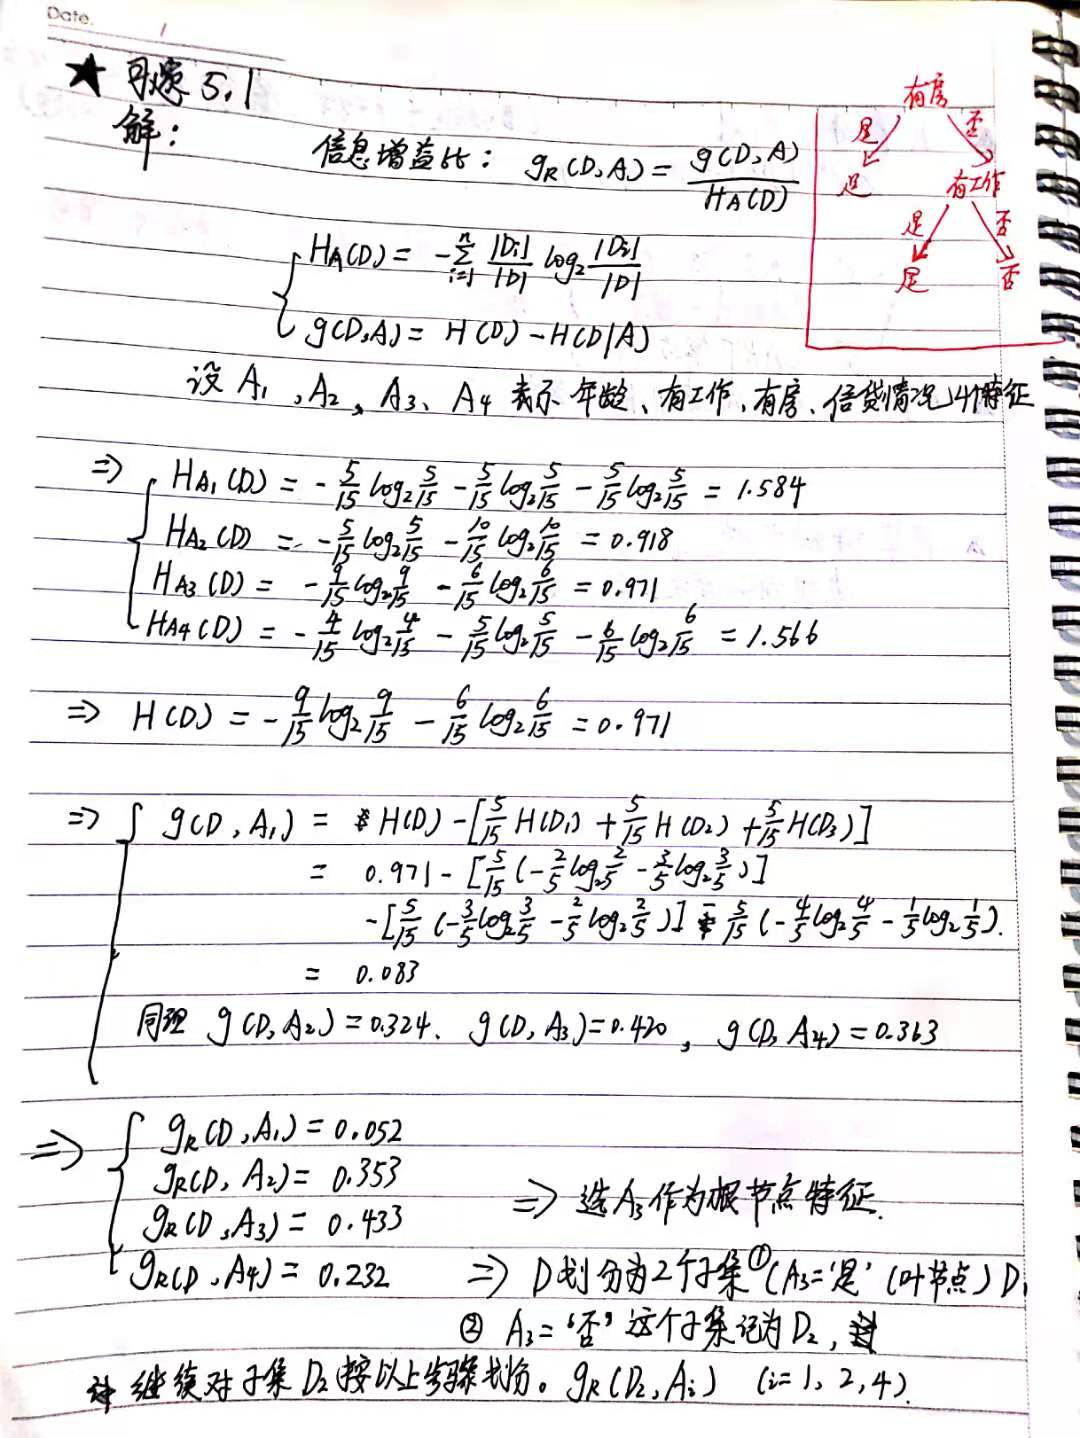 Date.
★ 习题 5.1
解：
信息增益比： gR(D,A) = g(D,A) / HA(D)
HA(D) = -∑_{i=1}^{n} |Di|/|D| log2 |Di|/|D|
g(D,A) = H(D) - H(D|A)
有房
是 否
是 有工作
是 否
是 否
设 A1, A2, A3、A4 表示 年龄、有工作、有房、信贷情况 4个特征
⇒ HA1(D) = -5/15 log2 5/15 - 5/15 log2 5/15 - 5/15 log2 5/15 = 1.584
HA2(D) = -5/15 log2 5/15 - 10/15 log2 10/15 = 0.918
HA3(D) = -9/15 log2 9/15 - 6/15 log2 6/15 = 0.971
HA4(D) = -4/15 log2 4/15 - 5/15 log2 5/15 - 6/15 log2 6/15 = 1.566
⇒ H(D) = -9/15 log2 9/15 - 6/15 log2 6/15 = 0.971
⇒ g(D,A1) = H(D) - [5/15 H(D1) + 5/15 H(D2) + 5/15 H(D3)]
= 0.971 - [5/15 (-2/5 log2 2/5 - 3/5 log2 3/5)]
-[5/15 (-3/5 log2 3/5 - 2/5 log2 2/5)] - 5/15 (-4/5 log2 4/5 - 1/5 log2 1/5).
= 0.083
同理 g(D,A2) = 0.324、 g(D,A3) = 0.420, g(D,A4) = 0.363
⇒ gR(D,A1) = 0.052
gR(D,A2) = 0.353
gR(D,A3) = 0.433
gR(D,A4) = 0.232
⇒ 选A3作为根节点特征.
⇒ D划分为2个子集①(A3='是'(叶节点) D1
② A3=‘否’这个子集记为D2,
继续对子集D2按以上步骤划分。gR(D2,Ai) (i=1,2,4)